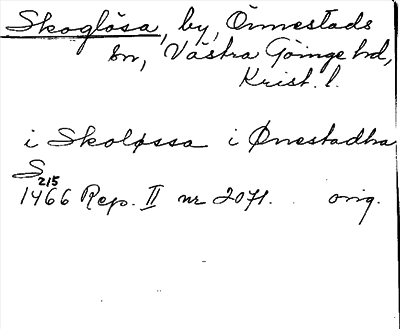 Skoglösa, by, Önnestads
sn, Västra Göinge hd,
Krist. l.
i Skoløssa i Ønestadha
S
215
1466 Rep. II nr 2071. orig.